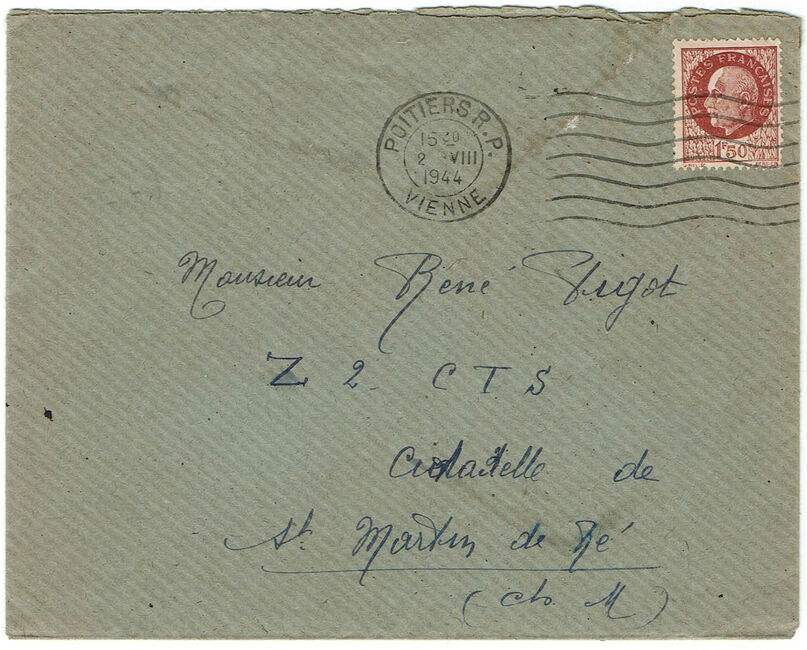 POSTES FRANÇAISES
1F50
POITIERS R.P.
15 30
2 VIII
1944
VIENNE
Monsieur René
Z 2 C T S
Citadelle de
St Martin de Ré
(ch. M)